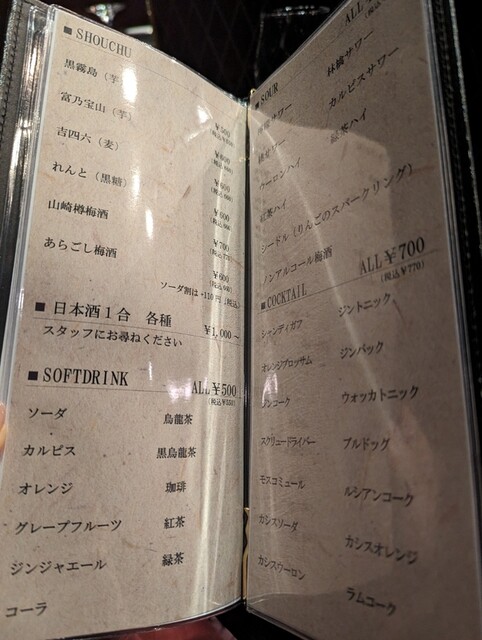 ■ SHOUCHU
黒霧島（芋）
富乃宝山（芋）
吉四六（麦） ¥600
れんと（黒糖） ¥600
山崎樽梅酒 ¥700
あらごし梅酒 ¥600
ソーダ割は+110円（税込）
■ 日本酒１合 各種 ¥1,000～
スタッフにお尋ねください
■ SOFTDRINK ALL ¥500
(税込¥550)
ソーダ 烏龍茶
カルピス 黒烏龍茶
オレンジ 珈琲
グレープフルーツ 紅茶
ジンジャエール 緑茶
コーラ
ALL
■ SOUR
サワー 林檎サワー
サワー カルピスサワー
ウーロンハイ 紅茶ハイ
ハイ
シードル（りんごのスパークリング）
ノンアルコール梅酒
■ COCKTAIL ALL ¥700
(税込¥770)
シャンディガフ ジントニック
オレンジブロッサム ジンバック
コーク ウォッカトニック
スクリュードライバー ブルドッグ
モスコミュール ルシアンコーク
カシスソーダ カシスオレンジ
カシスウーロン ラムコーク